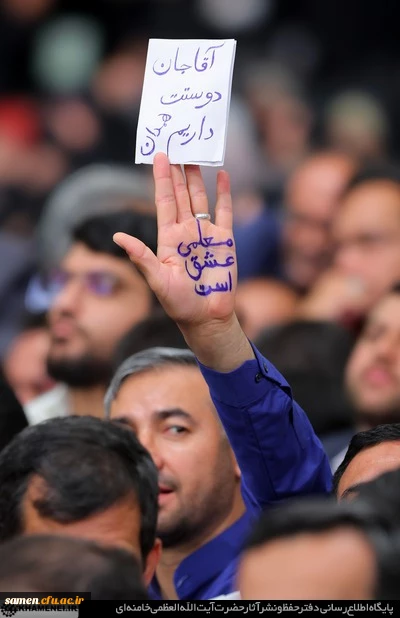 آقاجان
دوستت
داریم
همدان
معلمی
عشق
است
samen.cfu.ac.ir
KHAMENEI.IR
پایگاه اطلاع‌رسانی دفتر حفظ و نشر آثار حضرت آیت‌الله‌العظمی خامنه‌ای